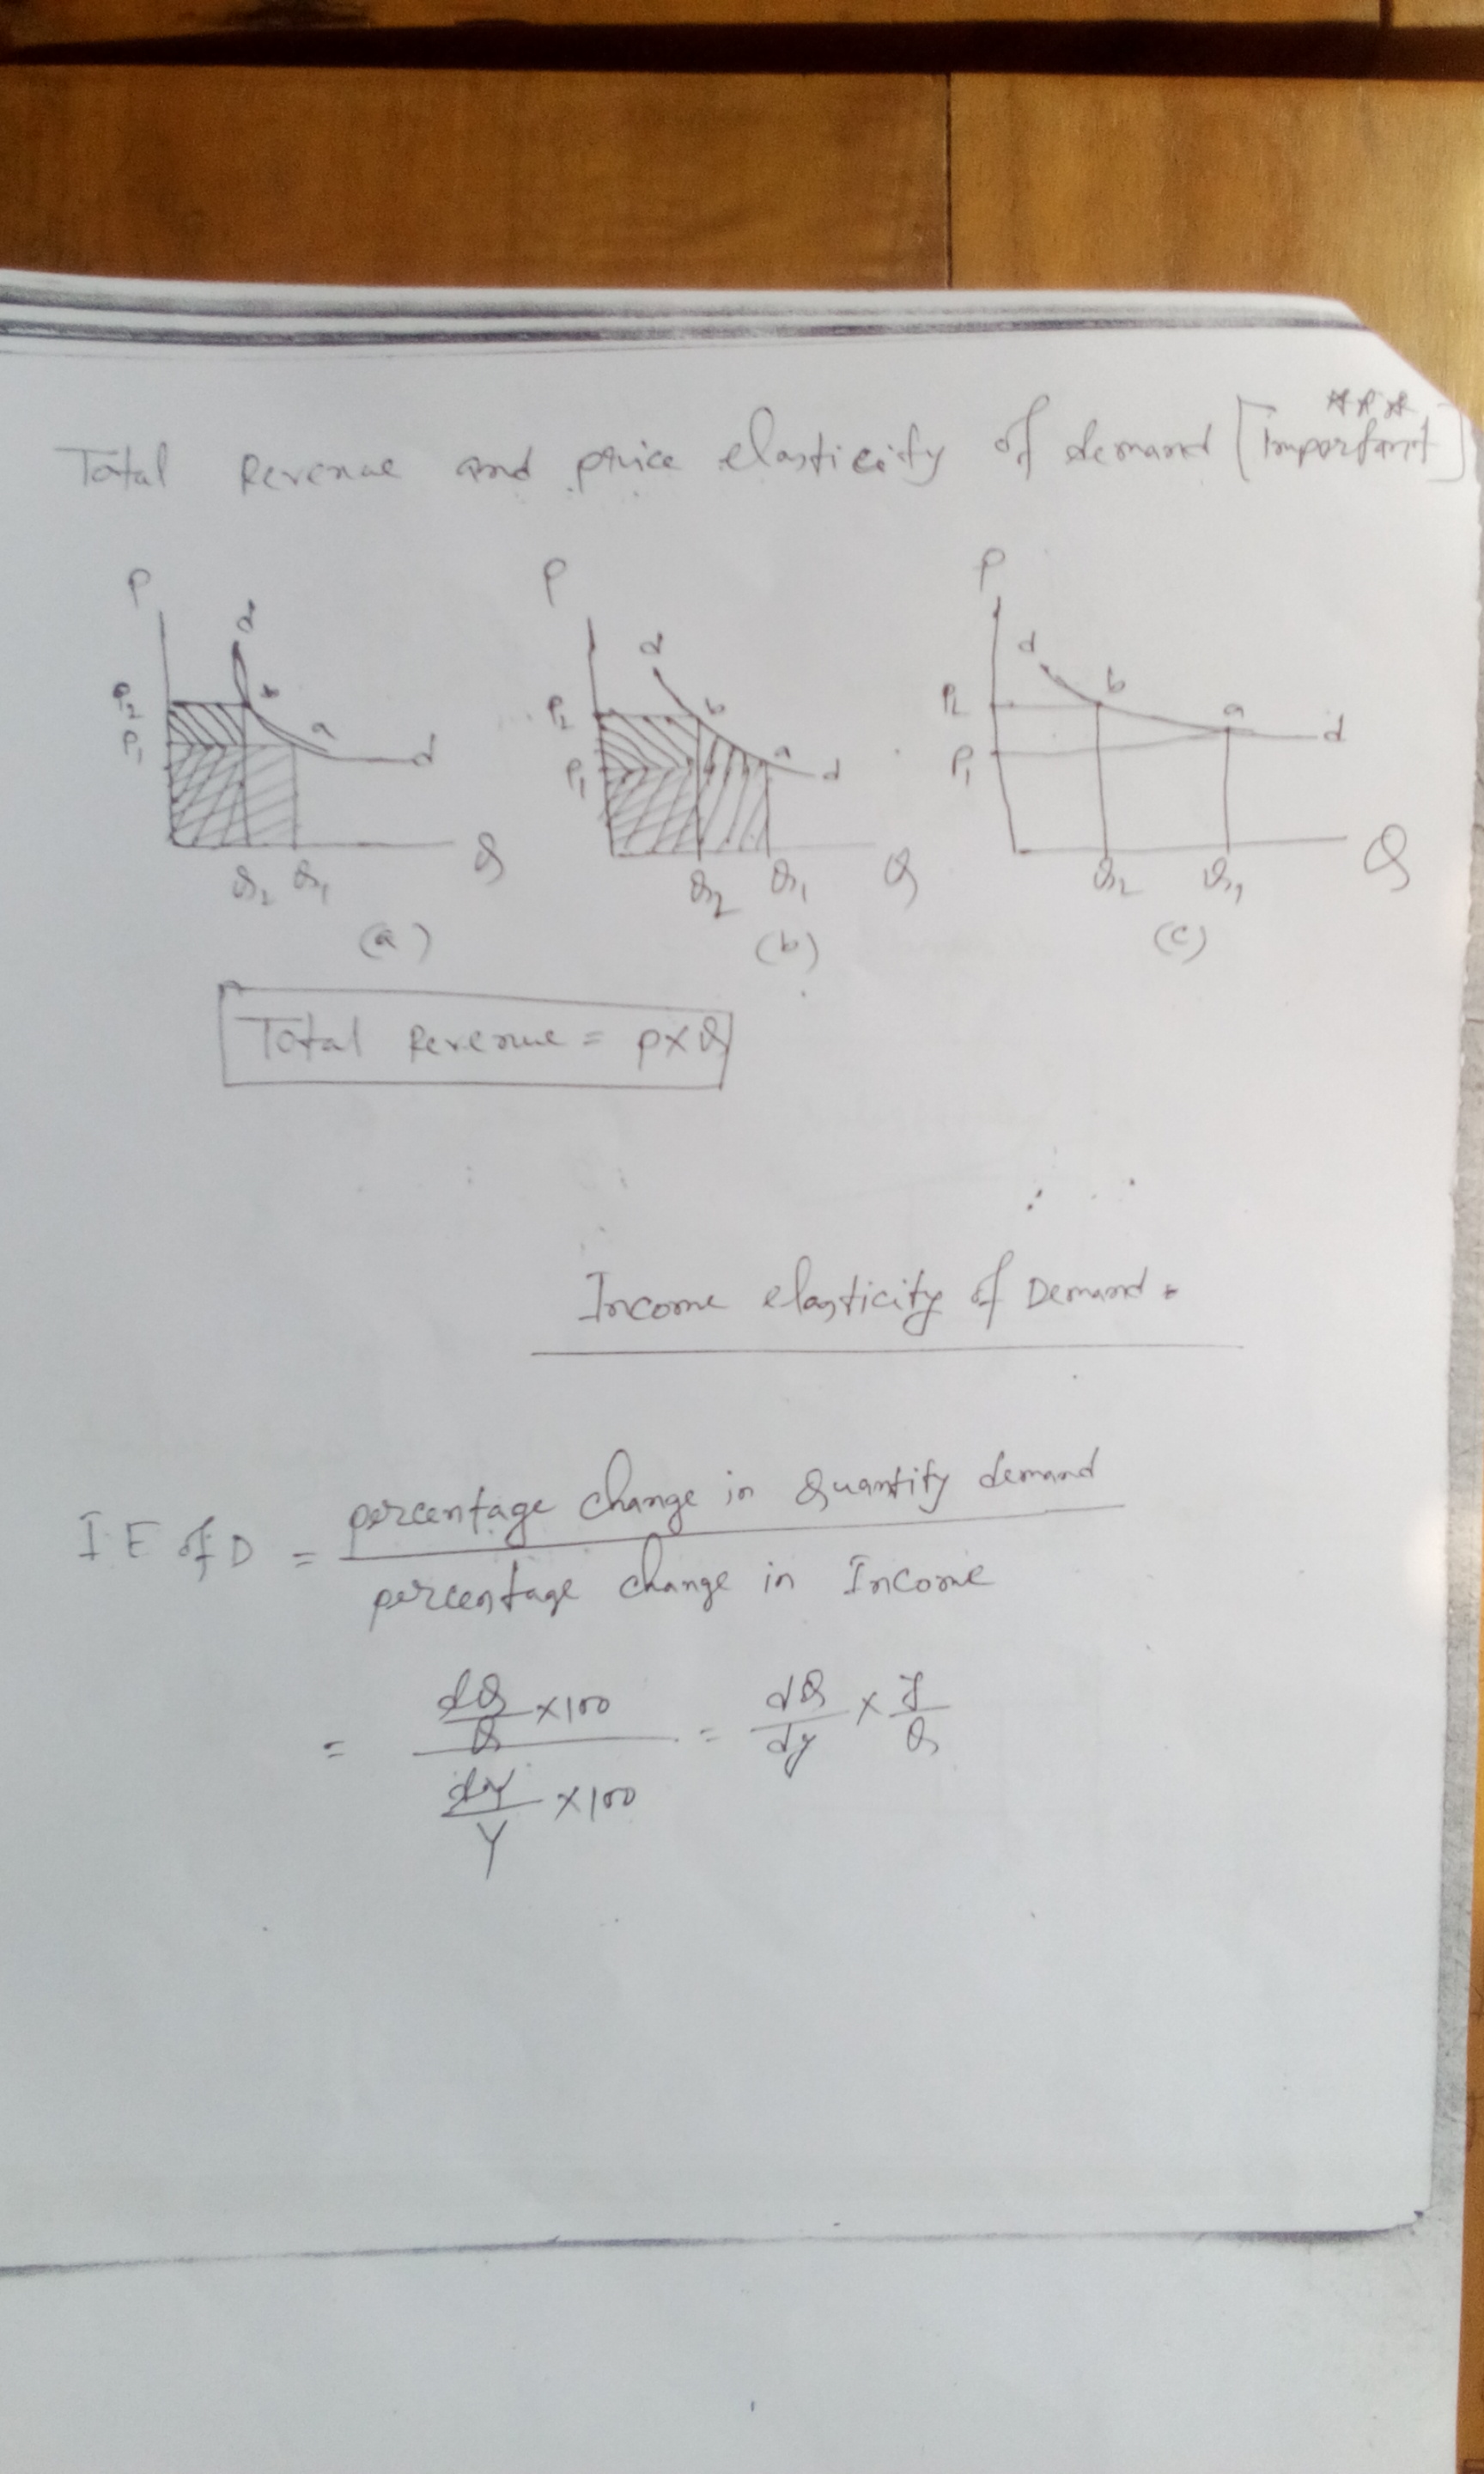 Total Revenue and price elasticity of demand [Important]
***
P P P
d d d
P2 b a d
P1
Q2 Q1 Q
P2 b a d
P1
Q2 Q1 Q
P2 b a d
P1
Q2 Q1 Q
(a) (b) (c)
Total Revenue = P×Q
Income elasticity of Demand.
IE of D = percentage change in Quantity demand
percentage change in Income
= dQ/Q ×100 = dQ/dy × y/Q
dY/Y ×100